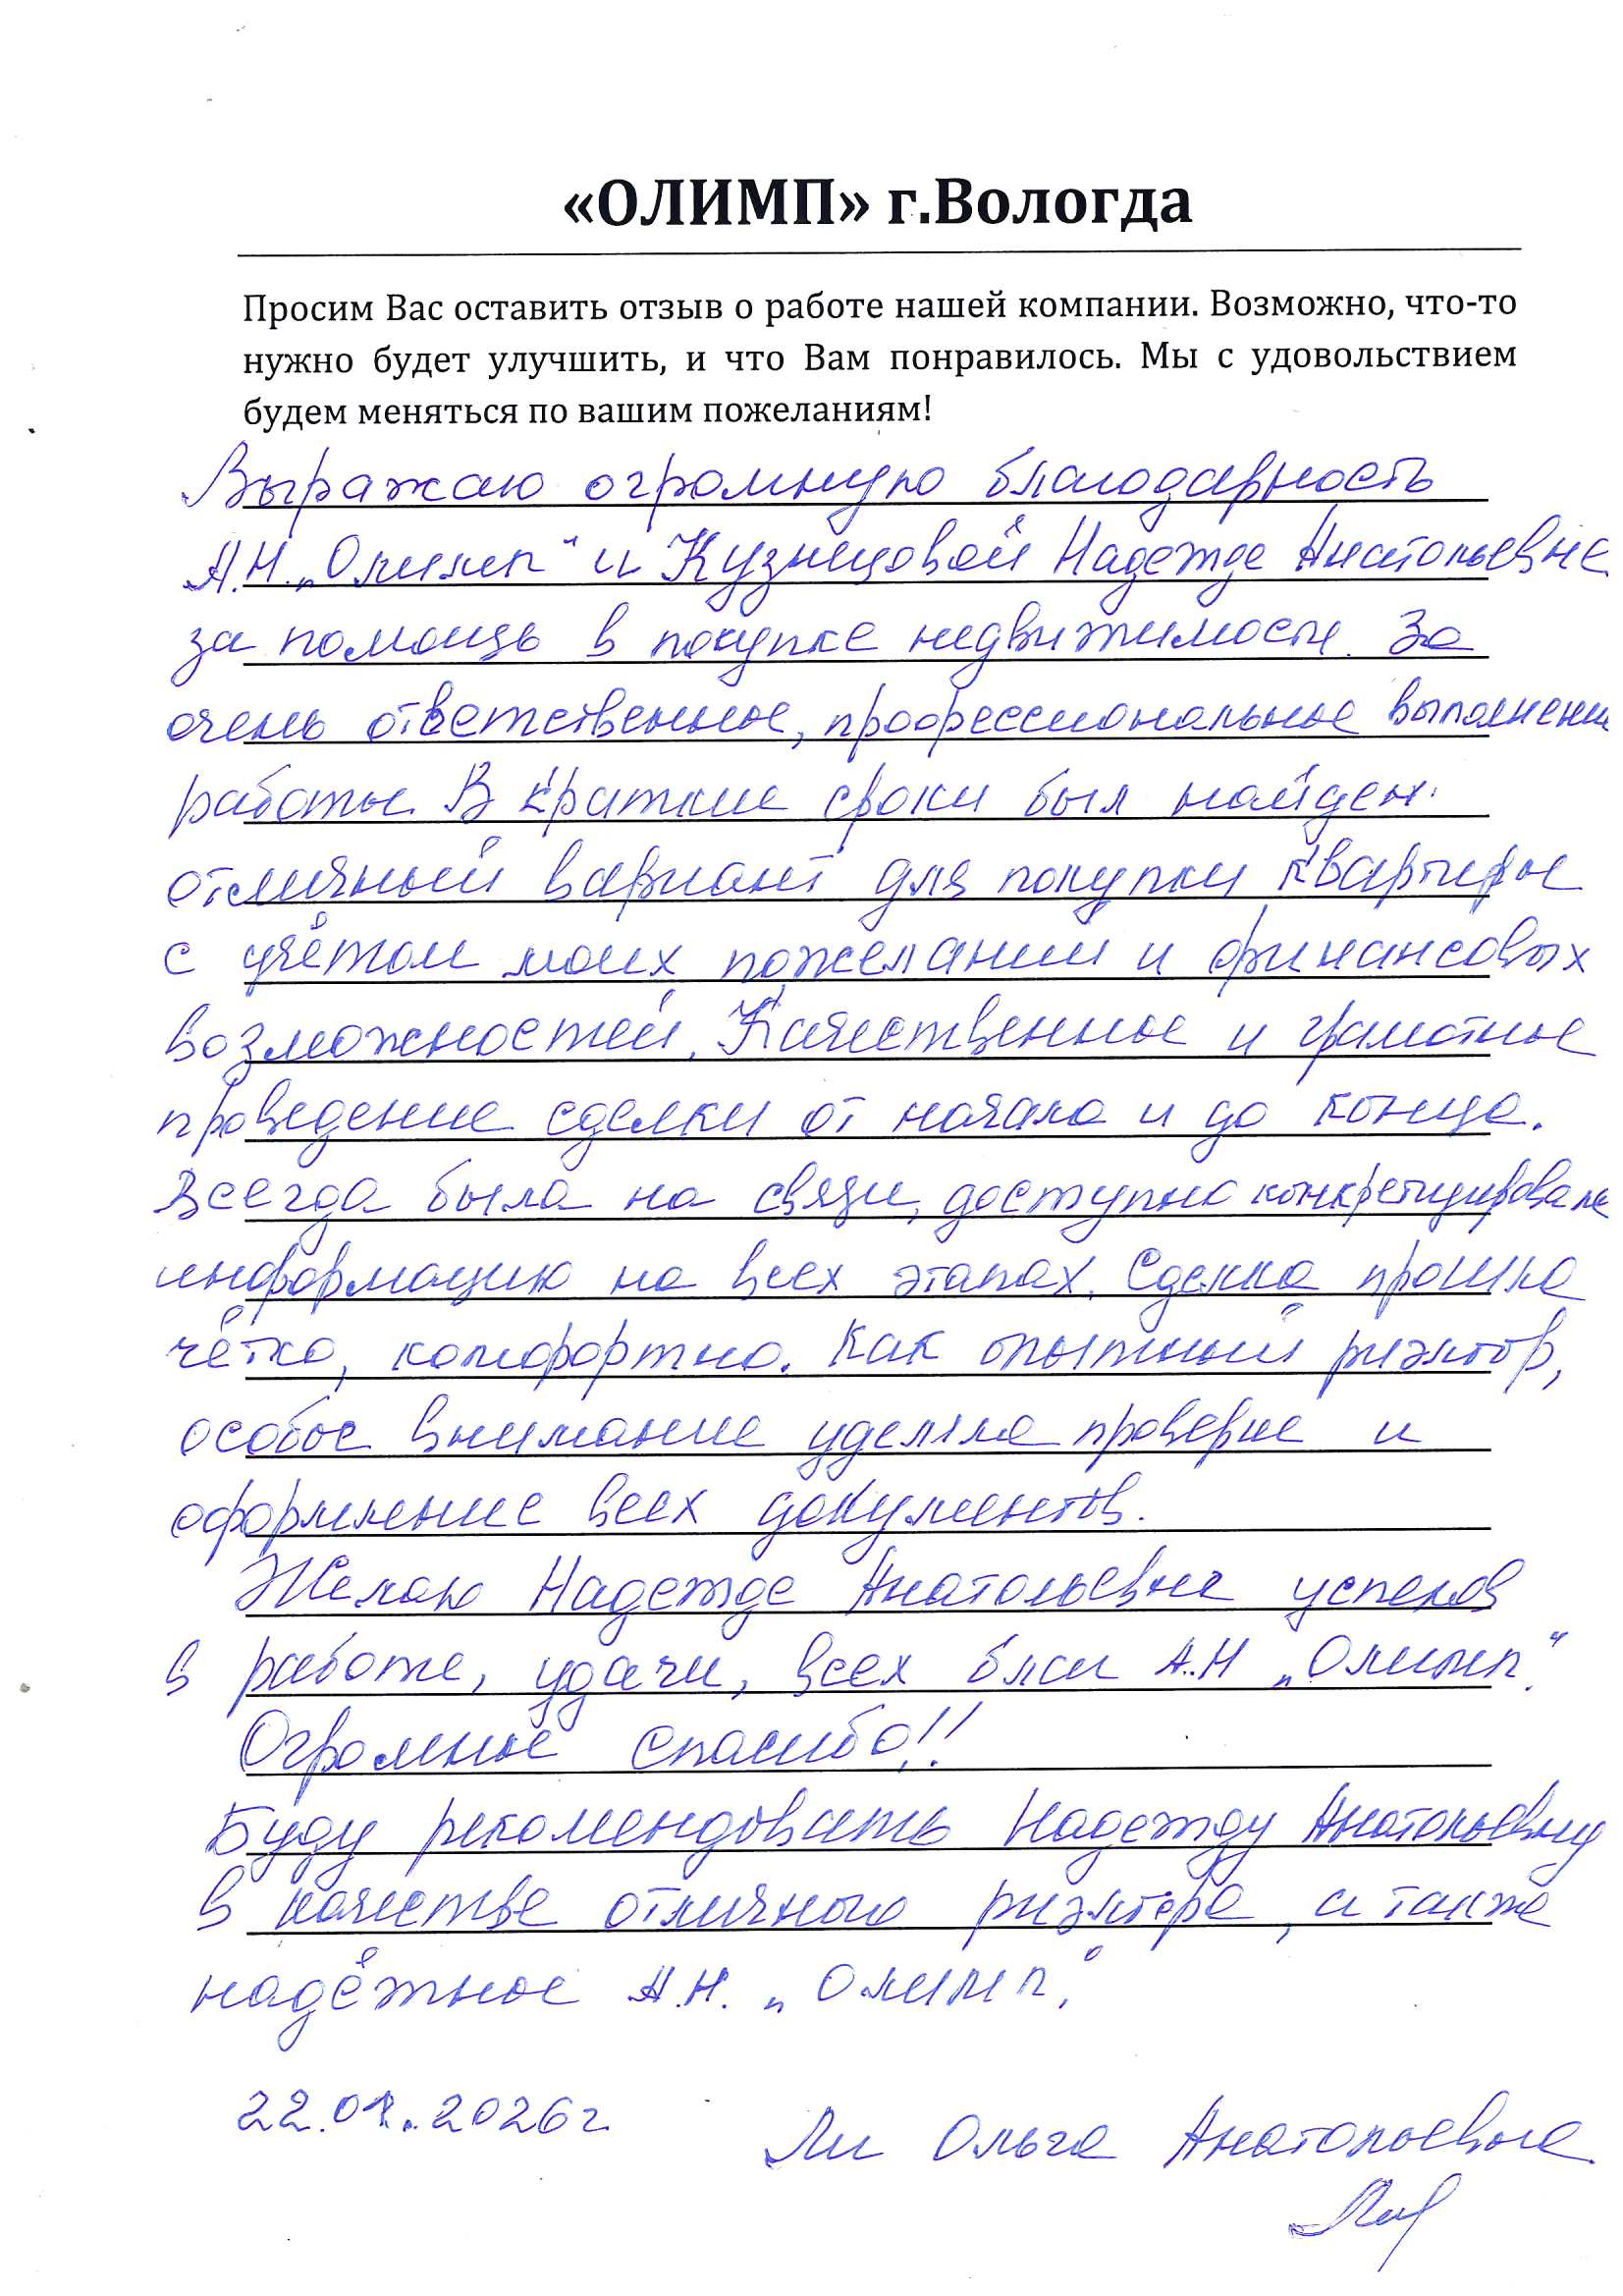 «ОЛИМП» г.Вологда
Просим Вас оставить отзыв о работе нашей компании. Возможно, что-то
нужно будет улучшить, и что Вам понравилось. Мы с удовольствием
будем меняться по вашим пожеланиям!
Выражаю огромную благодарность
А.Н. „Олимп“ и Кузнецовой Надежде Анатольевне
за помощь в покупке недвижимости. За
очень ответственное, профессиональное выполнение
работы. В краткие сроки был найден
отличный вариант для покупки квартиры
с учётом моих пожеланий и финансовых
возможностей. Качественное и грамотное
проведение сделки от начала и до конца.
Всегда была на связи, доступно конкретизировала
информацию на всех этапах. Сделка прошла
чётко, комфортно. Как опытный риэлтор,
особое внимание уделяла проверке и
оформление всех документов.
Желаю Надежде Анатольевне успехов
в работе, удачи, всех благ А.Н „Олимп“.
Огромное спасибо!!
Буду рекомендовать Надежду Анатольевну
в качестве отличного риэлтора, а также
надёжное А.Н. „Олимп“.
22.01.2026г
Ли Ольга Анатольевна